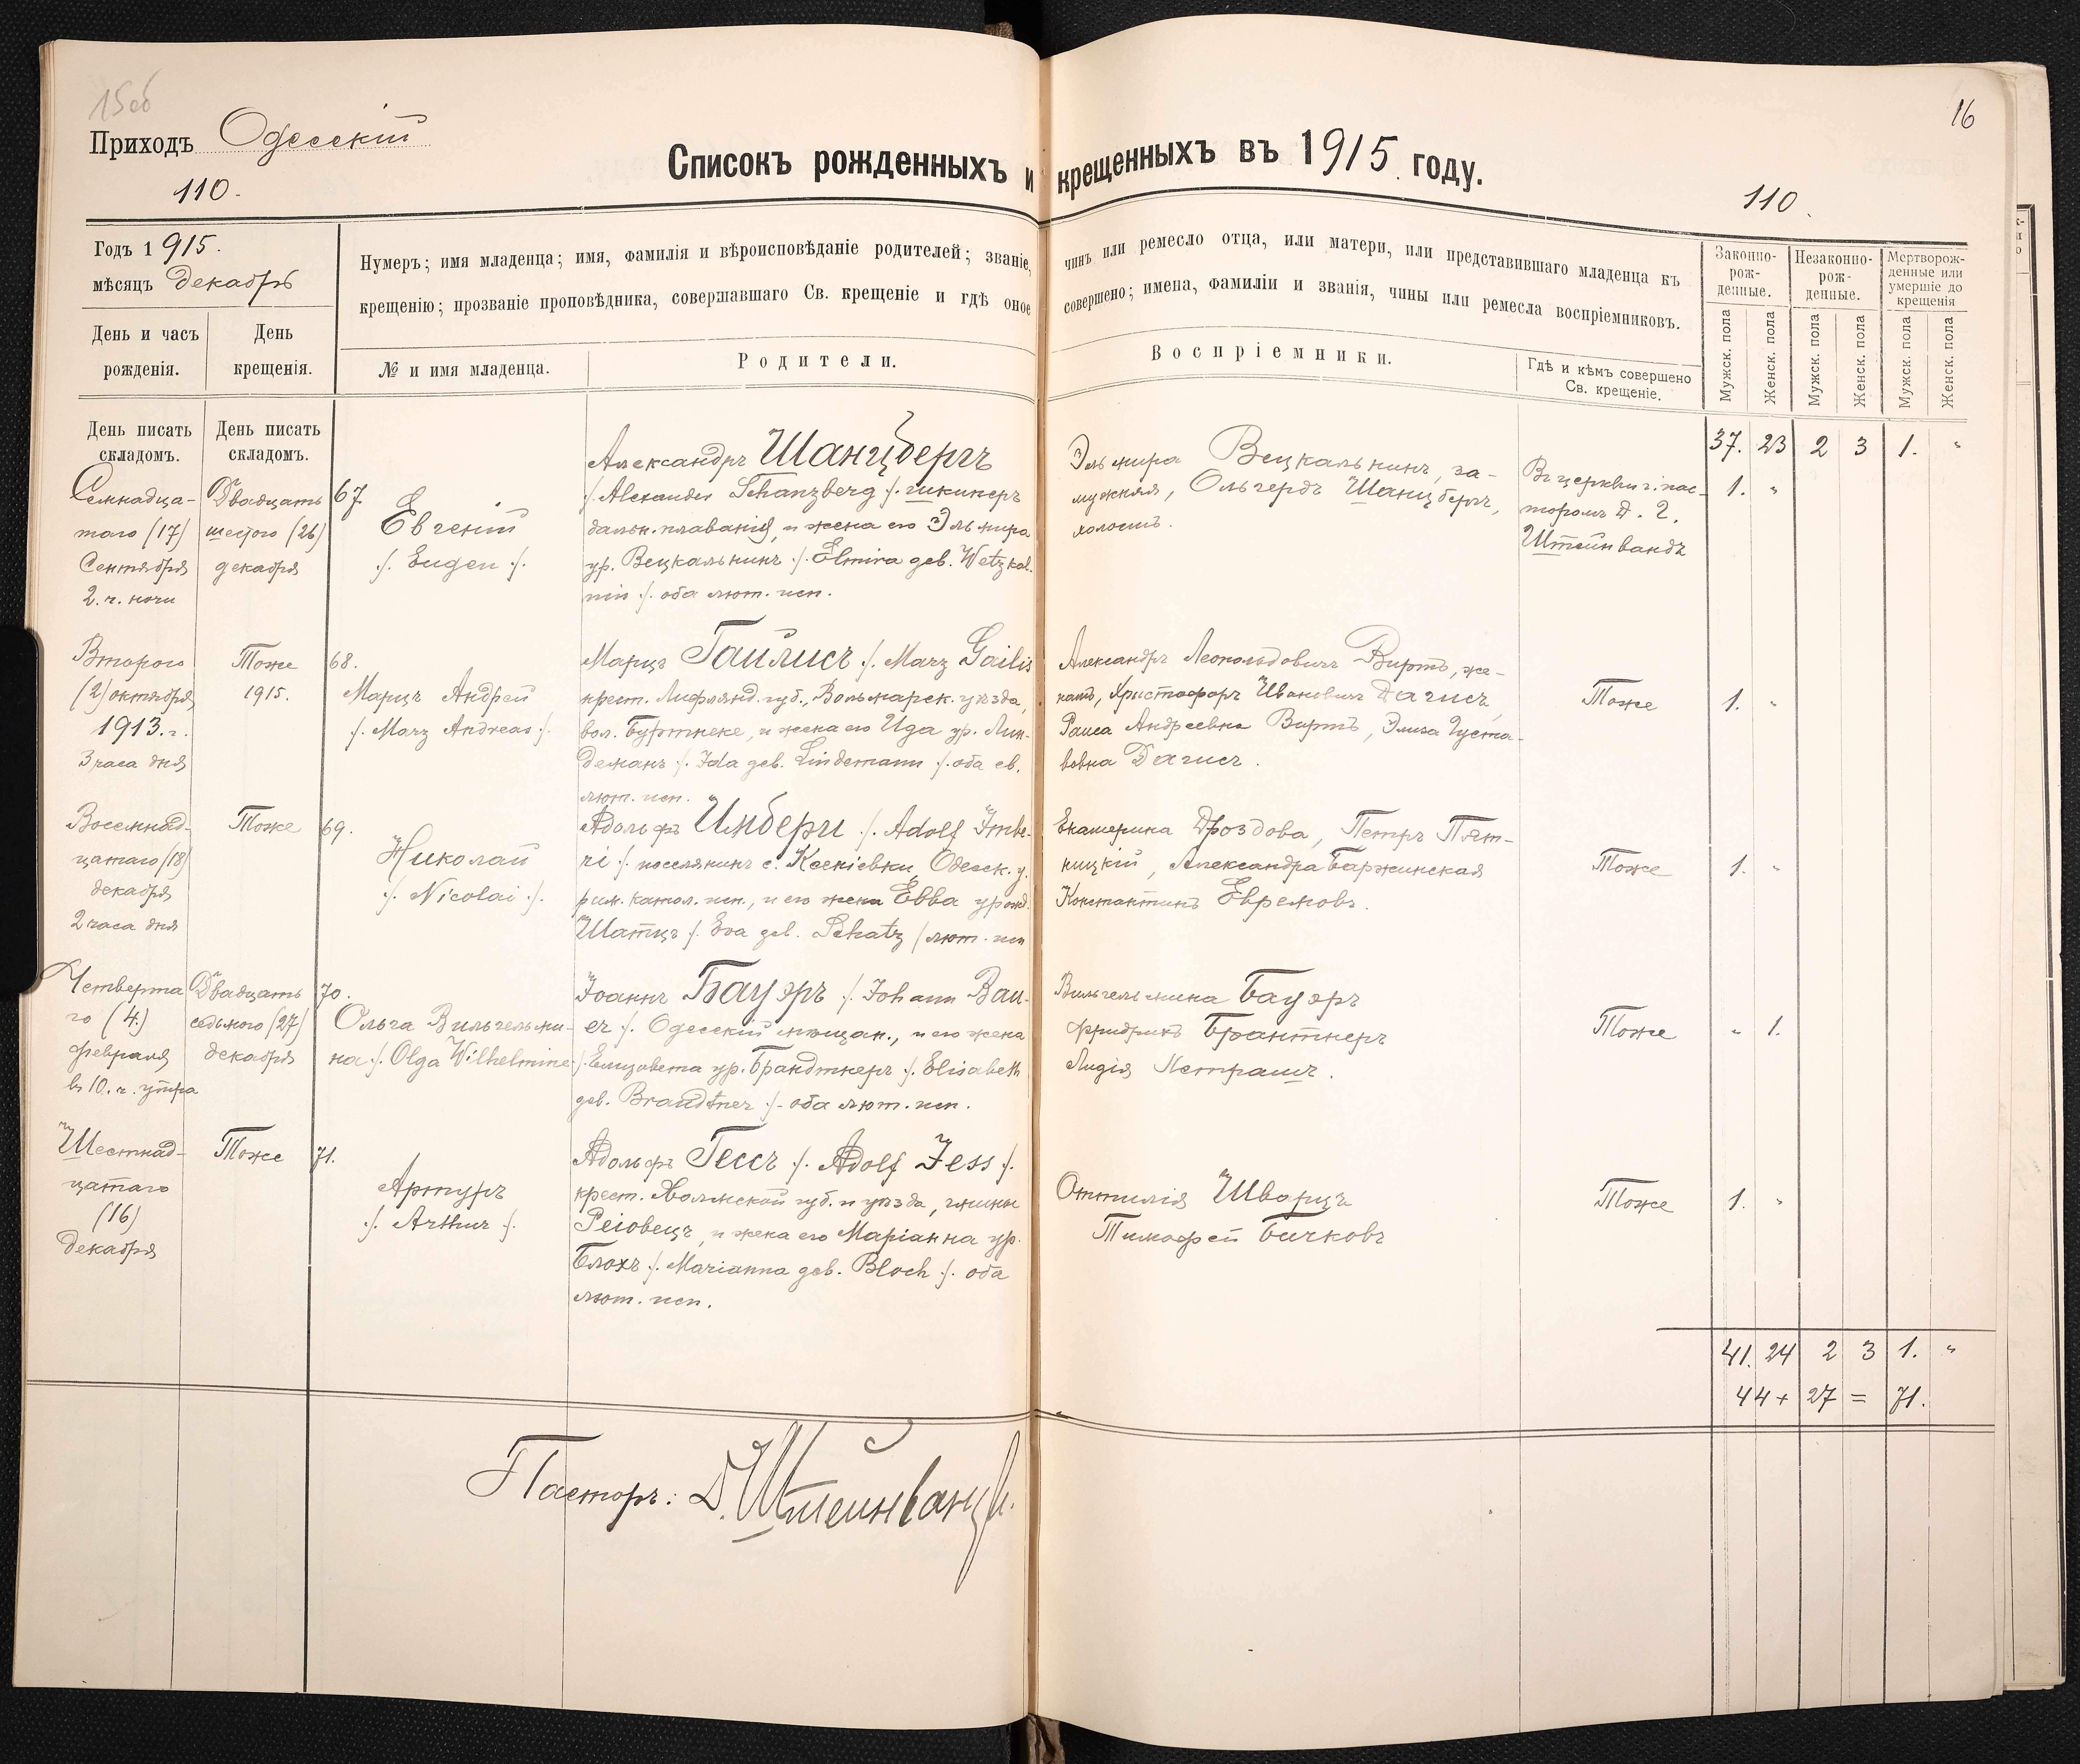 15об
Приходъ Одесскій
110.
Списокъ рожденныхъ и крещенныхъ въ 1915 году.
16
110.
Годъ 1915.
мѣсяцъ декабрь
День и часъ рожденія.
День крещенія.
Нумеръ; имя младенца; имя, фамилія и вѣроисповѣданіе родителей; званіе, чинъ или ремесло отца, или матери, или представившаго младенца къ
крещенію; прозваніе проповѣдника, совершавшаго Св. крещеніе и гдѣ оное совершено; имена, фамиліи и званія, чины или ремесла воспріемниковъ.
№ и имя младенца.
Родители.
Воспріемники.
Гдѣ и кѣмъ совершено
Св. крещеніе.
Законно-
рож-
денные.
Незаконно-
рож-
денные.
Мертворож-
денные или
умершіе до
крещенія
Мужск. пола
Женск. пола
Мужск. пола
Женск. пола
Мужск. пола
Женск. пола
День писать
складомъ.
День писать
складомъ.
37. 23 2 3 1. "
Семнадца-
таго (17)
Сентября
2. ч. ночи
Двадцать
шестого (26)
декабря
67.
Евгеній
/. Eugen /.
Александръ Шанцбергъ
/. Alexander Schanzberg /. шкиперъ
дальн. плаванія, и жена его Эльмира
ур. Вецкальнинъ /. Elmira geb. Wetzkal-
nin /. оба лют. исп.
Эльмира Вецкальнинъ, за-
мужняя, Ольгердъ Шанцбергъ,
холостъ.
Въ церкви г. пас-
торомъ Д. Г.
Штейнвандъ
1. "
Второго
(2) октября
1913. г.
3 часа дня
Тоже
1915.
68.
Марцъ Андрей
/. Marz Andreas /.
Марцъ Гайлисъ /. Marz Gailis
крест. Лифлянд. губ., Вольмарск. уѣзда,
вол. Буртнеке, и жена его Ида ур. Лин-
деманъ /. Ida geb. Lindemann /. оба ев.
лют. исп.
Александръ Леопольдовичъ Виртъ, же-
натъ, Христофоръ Ивановичъ Дагисъ,
Раиса Андреевна Виртъ, Элиза Густа-
вовна Дагисъ.
Тоже
1. "
Восемнад-
цатаго (18)
декабря
2 часа дня
Тоже
69.
Николай
/. Nicolai /.
Адольфъ Имбери /. Adolf Imbe-
ri /. поселянинъ с. Ксеніевки, Одесск. у.
рим. катол. исп., и его жена Евва урожд.
Шатцъ /. Eva geb. Schatz / лют. исп
Екатерина Дроздова, Петръ Пят-
ницкій, Александра Баржинская
Константинъ Ефремовъ.
Тоже
1. "
Четверта
го (4.)
февраля
въ 10. ч. утра
Двадцать
седьмого (27)
декабря
70.
Ольга Вильгельми-
на /. Olga Wilhelmine /.
Іоаннъ Бауэръ /. Johann Bau-
er /. Одесскій мѣщан., и его жена
Елизавета ур. Брандтнеръ /. Elisabeth
geb. Brandtner /. оба лют. исп.
Вильгельмина Бауэръ
Фридрихъ Брантнеръ
Лидія Петрашъ.
Тоже
" 1.
Шестнад-
цатаго
(16)
декабря
Тоже
71.
Артуръ
/. Arthur /.
Адольфъ Гессъ /. Adolf Jess /.
крест. Холмской губ. и уѣзда, гмины
Реіовецъ, и жена его Маріанна ур.
Блохъ /. Marianna geb. Bloch /. оба
лют. исп.
Оттилія Шварцъ
Тимофей Бичковъ
Тоже
1. "
41. 24 2 3 1. "
44 + 27 = 71.
Пасторъ: Д. Штейнвандъ.